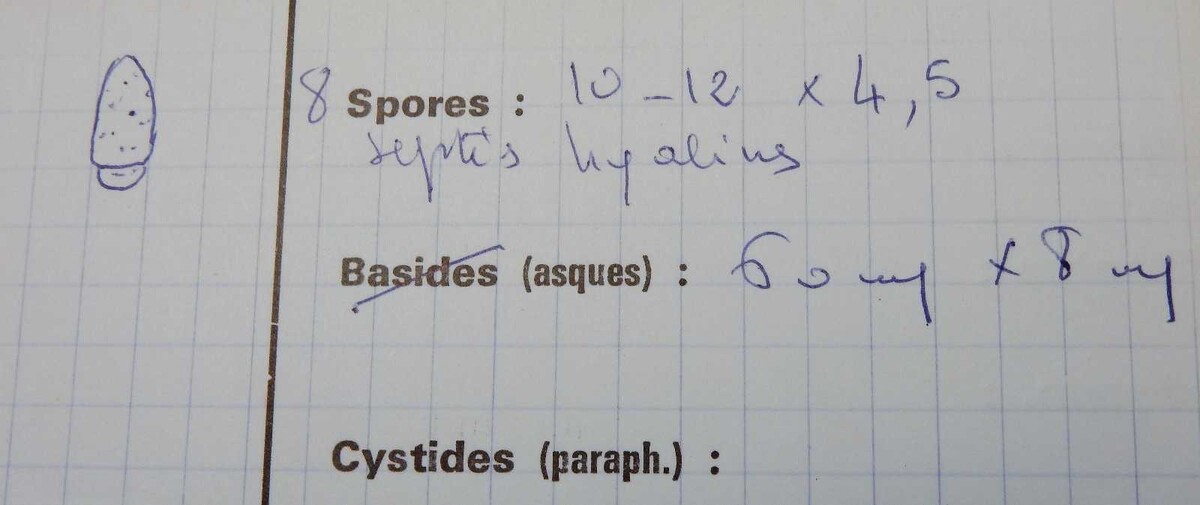 8 Spores : 10-12 x 4,5
septés hyalins
Basides (asques) : 60 my x 8 my
Cystides (paraph.) :